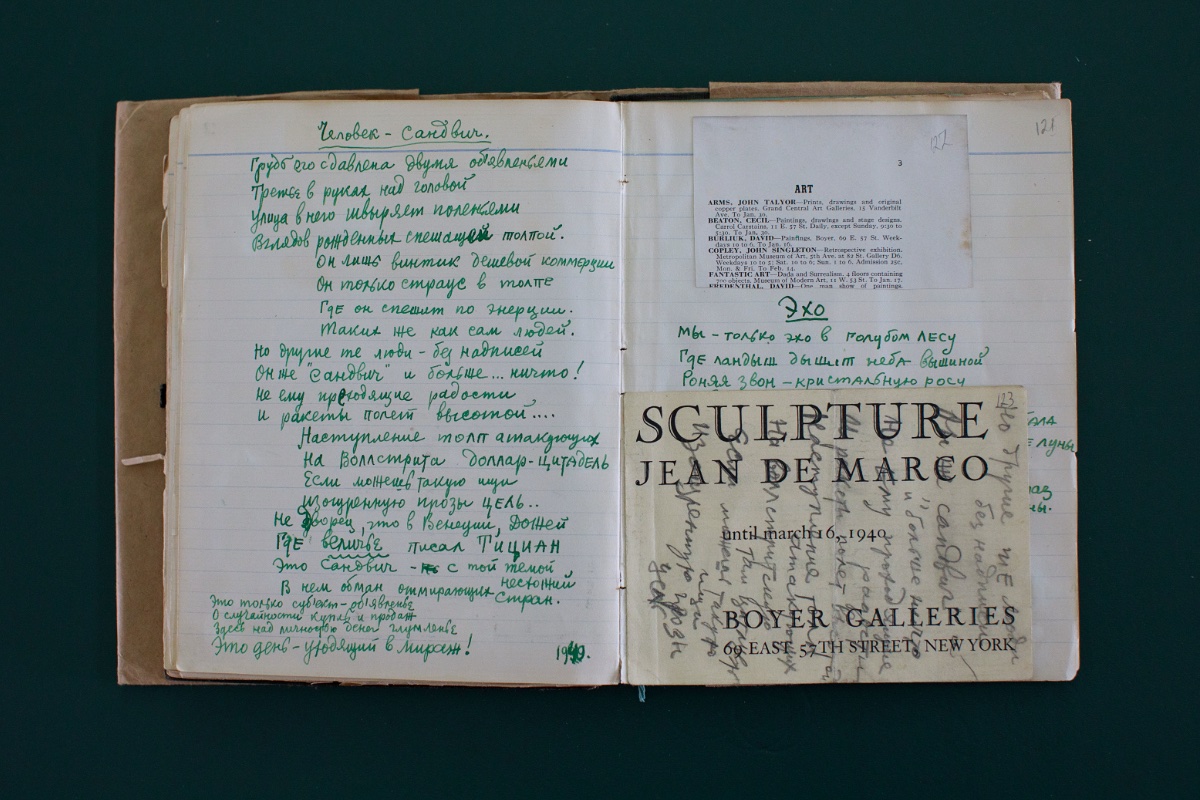 Человек - Сандвич.
Грудь его сдавлена двумя объявленьями
Третье в руках над головой
Улица в него швыряет поленьями
Взглядов рожденных спешащей толпой.
Он лишь винтик дешевой коммерции
Он только страус в толпе
Где он спешит по энерции.
Таких же как сам людей.
Но другие те люди - без надписей
Он же "Сандвич" и больше... ничто!
Не ему преходящие радости
и ракеты полет высотой....
Наступление толп атакующих
На Воллстрита Доллар-цитадель
Если можешь такую ищи
изощренную прозы цель..
Не Дворец, что в Венеции, Дожей
Где величье писал Тициан
Это Сандвич - с той темой
несхожий
В нем обман отмирающих стран.
Это только субъект-объявленье
О случайности купль и продаж
Здесь над личностью денег глумленье
Это день - уходящий в мираж!
1940.
121
122
3
ART
ARMS, JOHN TALYOR—Prints, drawings and original
copper plates. Grand Central Art Galleries, 15 Vanderbilt
Ave. To Jan. 20.
BEATON, CECIL—Paintings, drawings and stage designs.
Carrol Carstairs, 11 E. 57 St. Daily, except Sunday, 9:30 to
5:30. To Jan. 30.
BURLIUK, DAVID—Paintings. Boyer, 69 E. 57 St. Week-
days 10 to 6. To Jan. 16.
COPLEY, JOHN SINGLETON—Retrospective exhibition.
Metropolitan Museum of Art, 5th Ave. at 82 St. Gallery D6.
Weekdays 10 to 5; Sat. 10 to 6; Sun. 1 to 6. Admission 25c,
Mon. & Fri. To Feb. 14.
FANTASTIC ART—Dada and Surrealism. 4 floors containing
700 objects. Museum of Modern Art, 11 W. 53 St. To Jan. 17.
FREDENTHAL, DAVID—One man show of paintings,
Эхо
Мы - только эхо в голубом лесу
Где ландыш дышит неба вышиной
Роняя звон - кристальную росу
луны
123
SCULPTURE
JEAN DE MARCO
until march 16, 1940
BOYER GALLERIES
69 EAST 57TH STREET, NEW YORK
Но другие те люди
без надписей